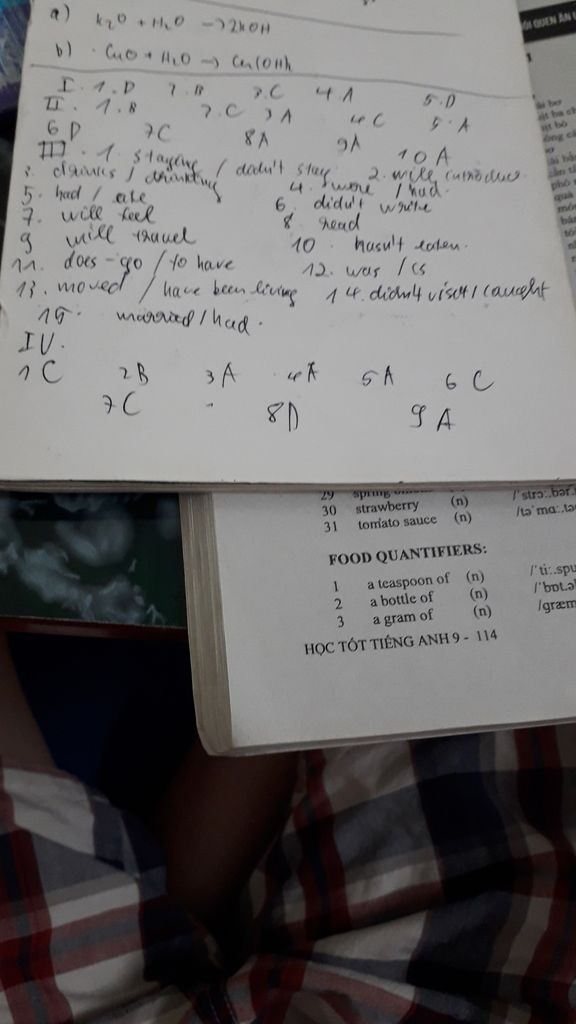 a) K2O + H2O → 2KOH
b) CuO + H2O → Cu(OH)2
I. 1. D 2. B 3. C 4 A 5. D
II. 1. B 2. C 3 A 4 C 5. A
6 D 7C 8A 9A 10 A
III. 1. staying / didn't stay 2. will introduce
3. drinks / drinking 4. were / had
5. had / ate 6. didn't write
7. will feel 8. read
9 will travel 10. hasn't eaten.
11. does - go / to have 12. was / is
13. moved / have been living 14. didn't visit / caught
15. married / had.
IV.
1 C 2B 3 A 4 A 5 A 6 C
7 C 8D 9 A
29 spring
30 strawberry (n)
31 tomato sauce (n)
FOOD QUANTIFIERS:
1 a teaspoon of (n) /'ti:.spu
2 a bottle of (n) /'bɒt.ə
3 a gram of (n) /græm
HỌC TỐT TIẾNG ANH 9 - 114